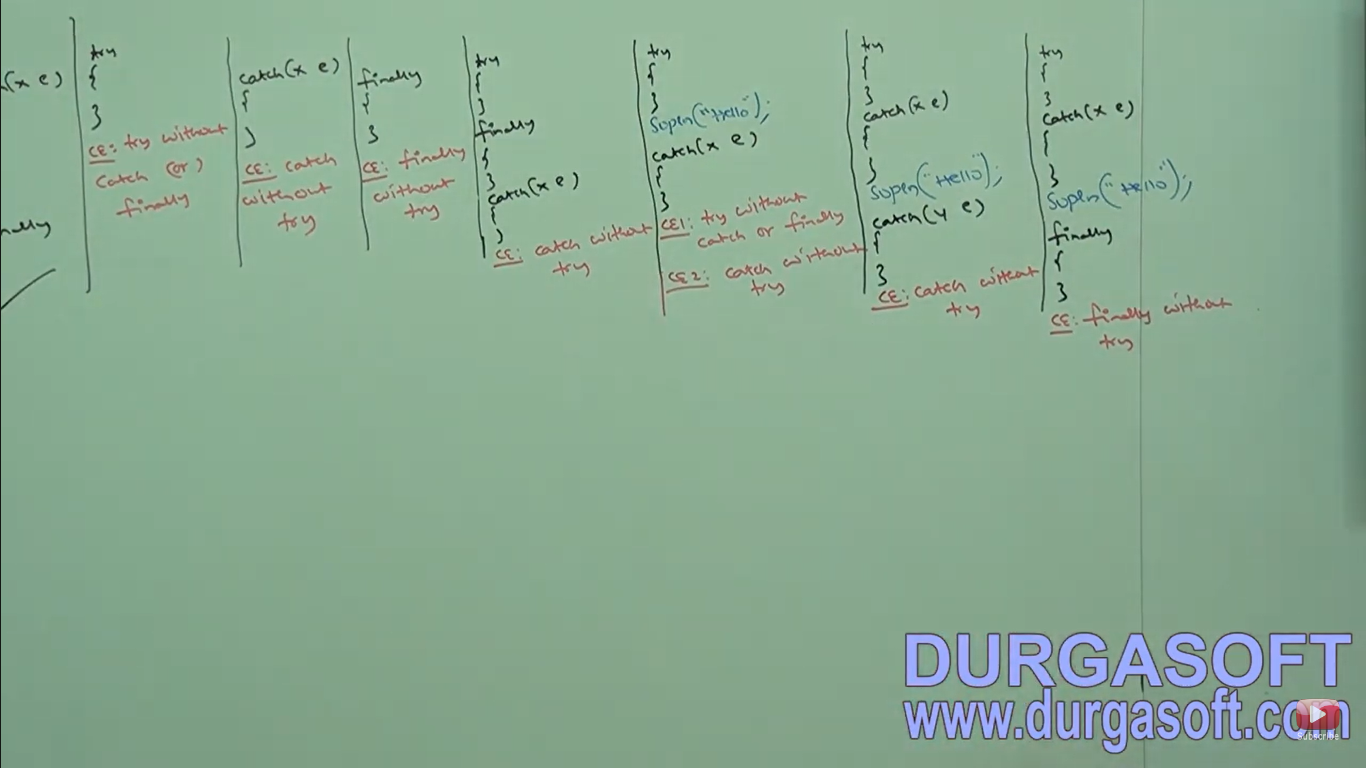 (x e)
nally
try
{
}
CE: try without
catch (or)
finally
catch(x e)
{
}
CE: catch
without
try
finally
{
}
CE: finally
without
try
try
{
}
finally
{
}
catch(x e)
{
}
CE: catch without
try
try
{
}
Sopln("Hello");
catch(x e)
{
}
CE1: try without
catch or finally
CE2: catch without
try
try
{
}
catch(x e)
{
}
Sopln("Hello");
catch(y e)
{
}
CE: catch without
try
try
{
}
catch(x e)
{
}
Sopln("Hello");
finally
{
}
CE: finally without
try
DURGASOFT
www.durgasoft.com
Subscribe